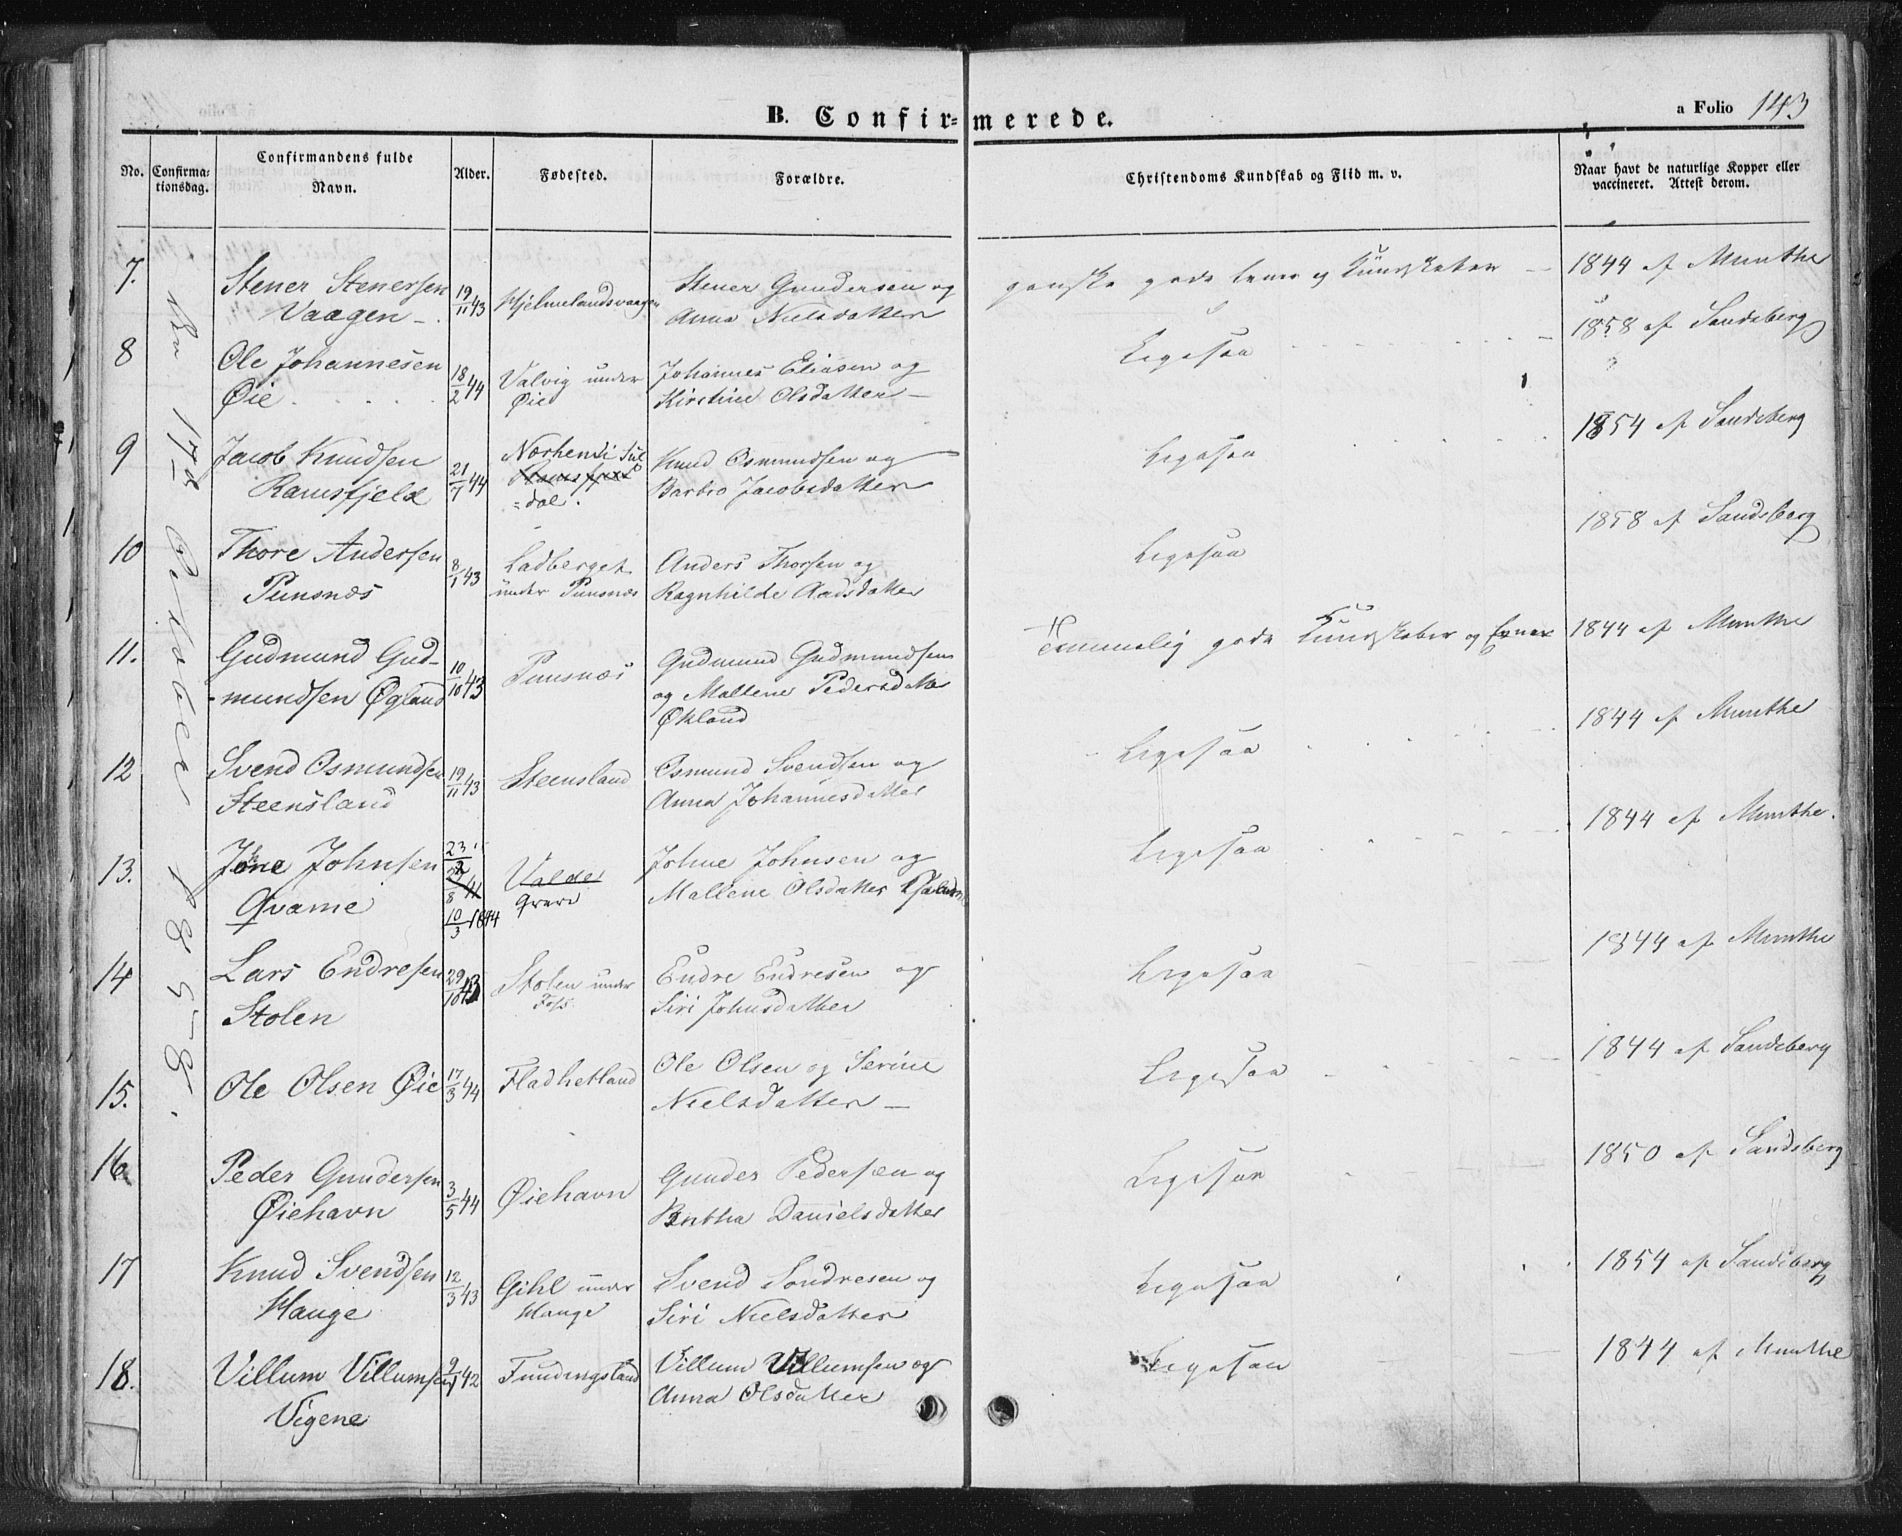 B. Confirmerede.
a Folio 143
No. Confirmationsdag. Confirmandens fulde Navn. Alder. Fødested. Forældre. Christendoms Kundskab og Flid m. v. Naar havt de naturlige Kopper eller vaccineret. Attest derom.
Den 17de October 1858.
7. Stener Stenersen 19/11 43 Hjelmelandsvaagen Stener Gundersen og ganske gode Evner og Kundskaber — 1844 af Munthe
Vaagen — Anna Nielsdatter
8 Ole Johannesen 18/2 44 Valvig under Johannes Eliasen og Ligesaa 1858 af Sandsberg
Øie Øie Kirstine Olsdatter —
9 Jacob Knudsen 21/7 44 Norheni Sul Knud Osmundsen og Ligesaa 1854 af Sandsberg
Ramsfjeld Ramsfjeld =dal. Barbro Jacobsdatter
10 Thore Andersen 8/1 43 Ladberget Anders Thorsen og Ligesaa 1858 af Sandsberg
Punsnæs under Punsnæs Ragnhilde Aadsdatter
11. Gudmund Gud- 10/10 43 Punsnæs Gudmund Gudmundsen Temmelig gode Kundskaber og Evner 1844 af Munthe
-mundsen Øgland og Mallene Pedersdatter
Økland
12 Svend Osmundsen 19/11 43 Steensland Osmund Svendsen og Ligesaa 1844 af Munthe
Steensland Anna Johannesdatter
13. Jone Johnsen 23/2 Valde Johne Johnsen og Ligesaa 1844 af Munthe.
Qvame 10/3 1844 Mallene Olsdatter
14 Lars Endresen 29/10 43 Stolen under Endre Endresen og Ligesaa 1844 af Munthe
Stolen Foss. Siri Johnsdatter
15. Ole Olsen Øie 17/3 44 Fladhetland Ole Olsen og Serine Ligesaa 1844 af Sandsberg
Nielsdatter —
16 Peder Gundersen 3/5 44 Øiehavn Gunder Pedersen og Ligesaa 1850 af Sandsberg
Øiehavn Bertha Danielsdatter
17 Knud Svendsen 12/3 43 Gihl under Svend Sondresen og Ligesaa 1854 af Sandsberg
Hauge Hauge Siri Nielsdatter
18. Villum Villumsen 9/1 42 Fundingsland Villum Villumsen og Ligesaa 1844 af Munthe
Vigene Anna Olsdatter